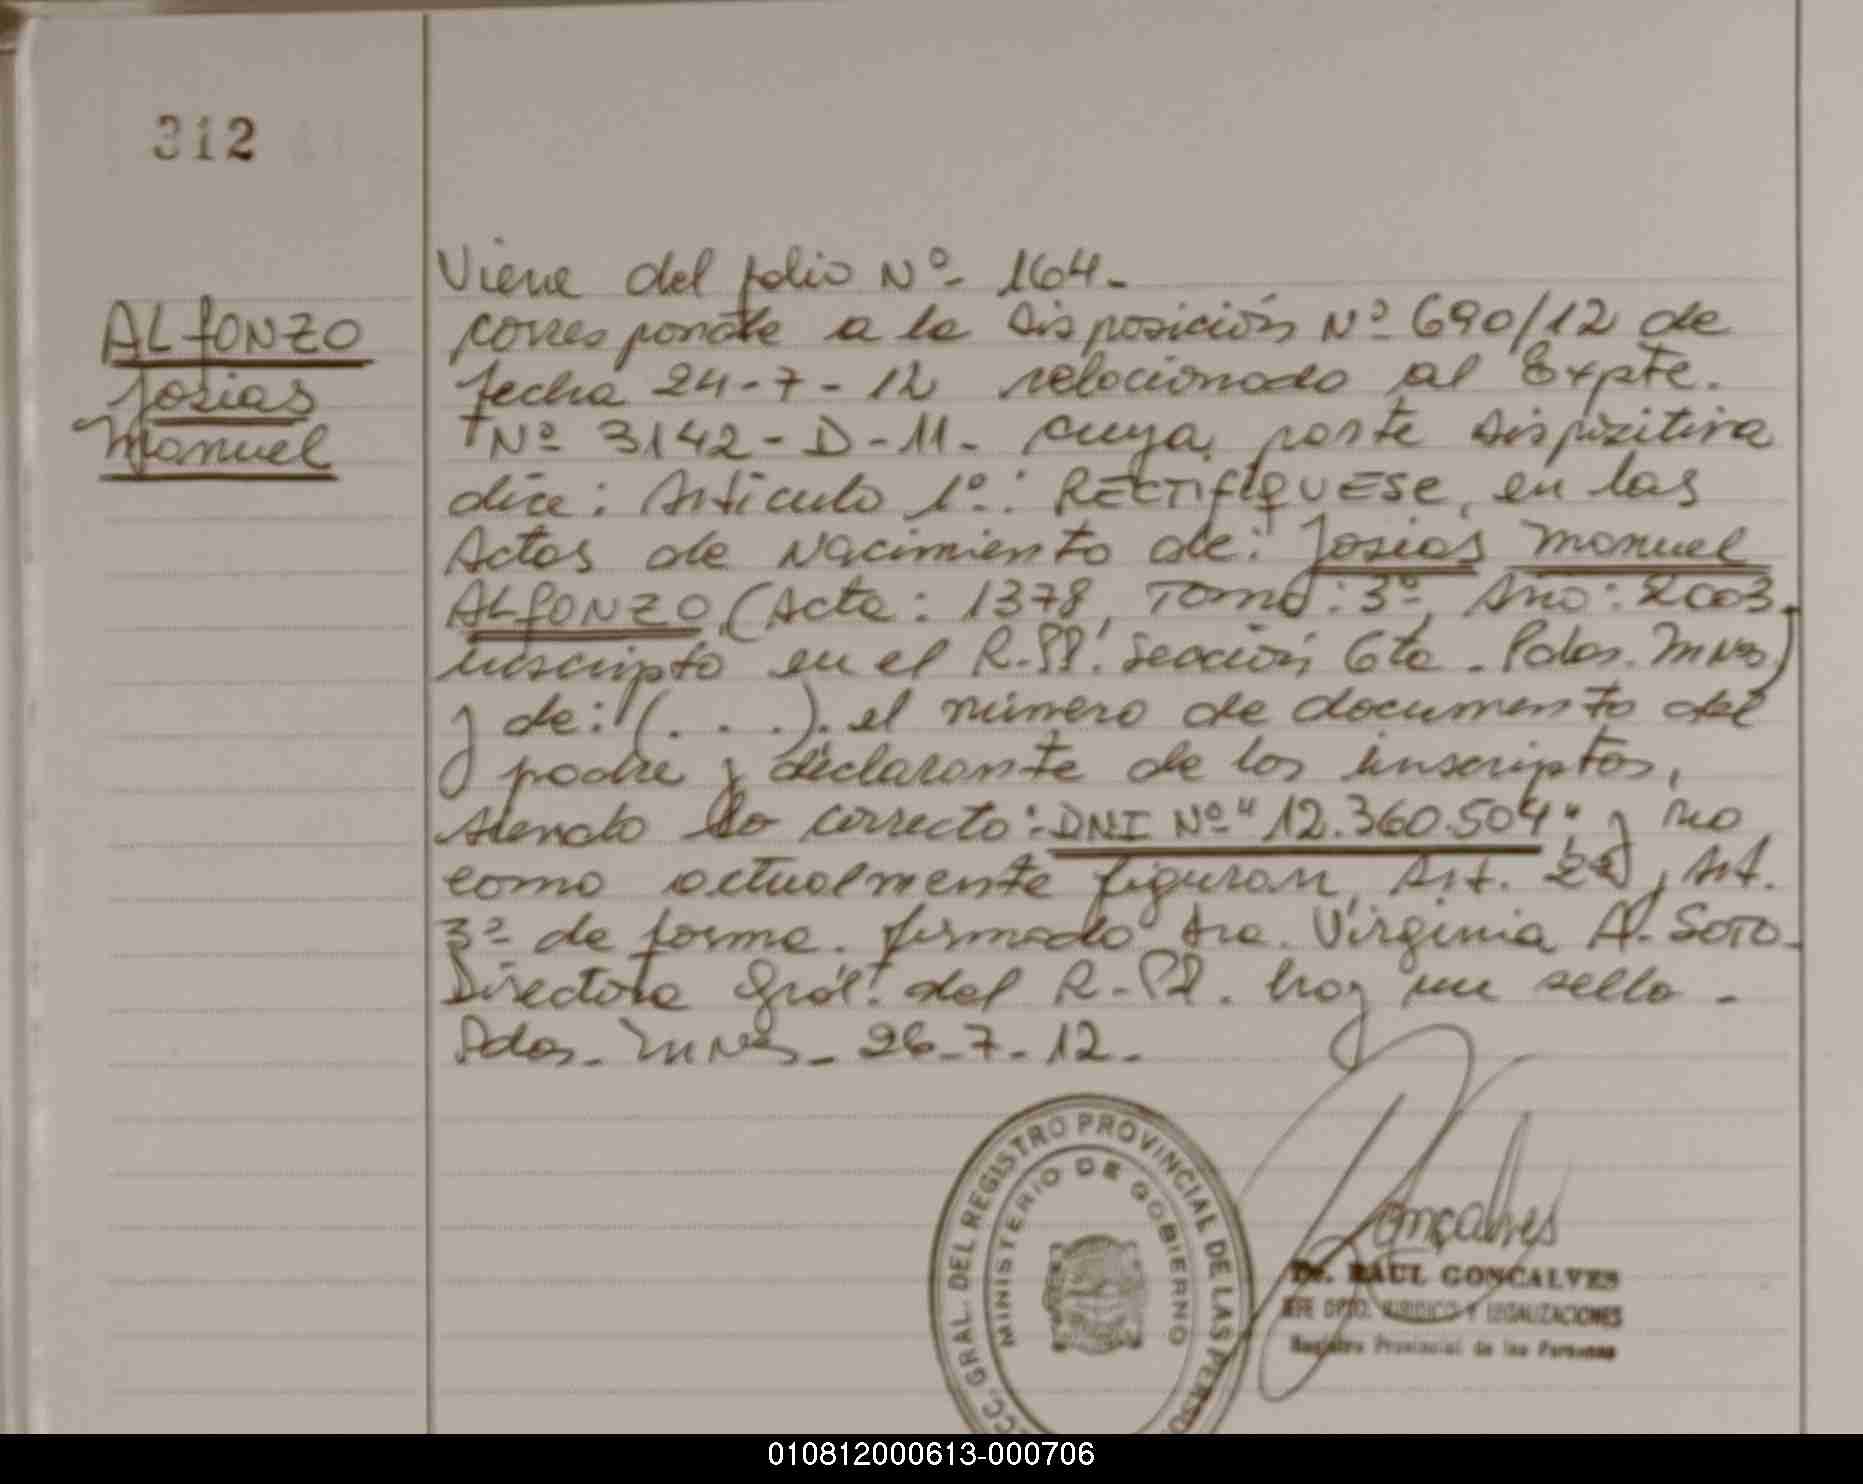 312
ALfONZO
Josias
Manuel
Viene del folio Nº 164.-
corresponde a la disposición Nº 690/12 de
fecha 24-7-12 relacionado al Expte.
Nº 3142-D-11- cuya parte dispizitiva
dice: Artículo 1º: RECTIFIQUESE, en las
Actas de Nacimiento de: Josias Manuel
ALfONZO (Acta: 1378, Tomo: 3º, Año: 2003,
inscripto en el R.PP. Sección 6ta - Pdas. Mnes)
y de: (. . .). el número de documento del
padre y declarante de los inscriptos,
siendo lo correcto: DNI Nº "12.360.504" y no
como actualmente figuran, Art. 2º, Art.
3º de forma. firmado Sra. Virginia A. Soto-
Directora Gral. del R.PP. hay un sello -
Pdas. Mnes - 26-7-12.-
CC. GRAL. DEL REGISTRO PROVINCIAL DE LAS PERSO
MINISTERIO DE GOBIERNO
Goncalves
Dr. RAUL GONCALVES
JEFE DPTO. JURIDICO Y LEGALIZACIONES
Registro Provincial de las Personas
010812000613-000706